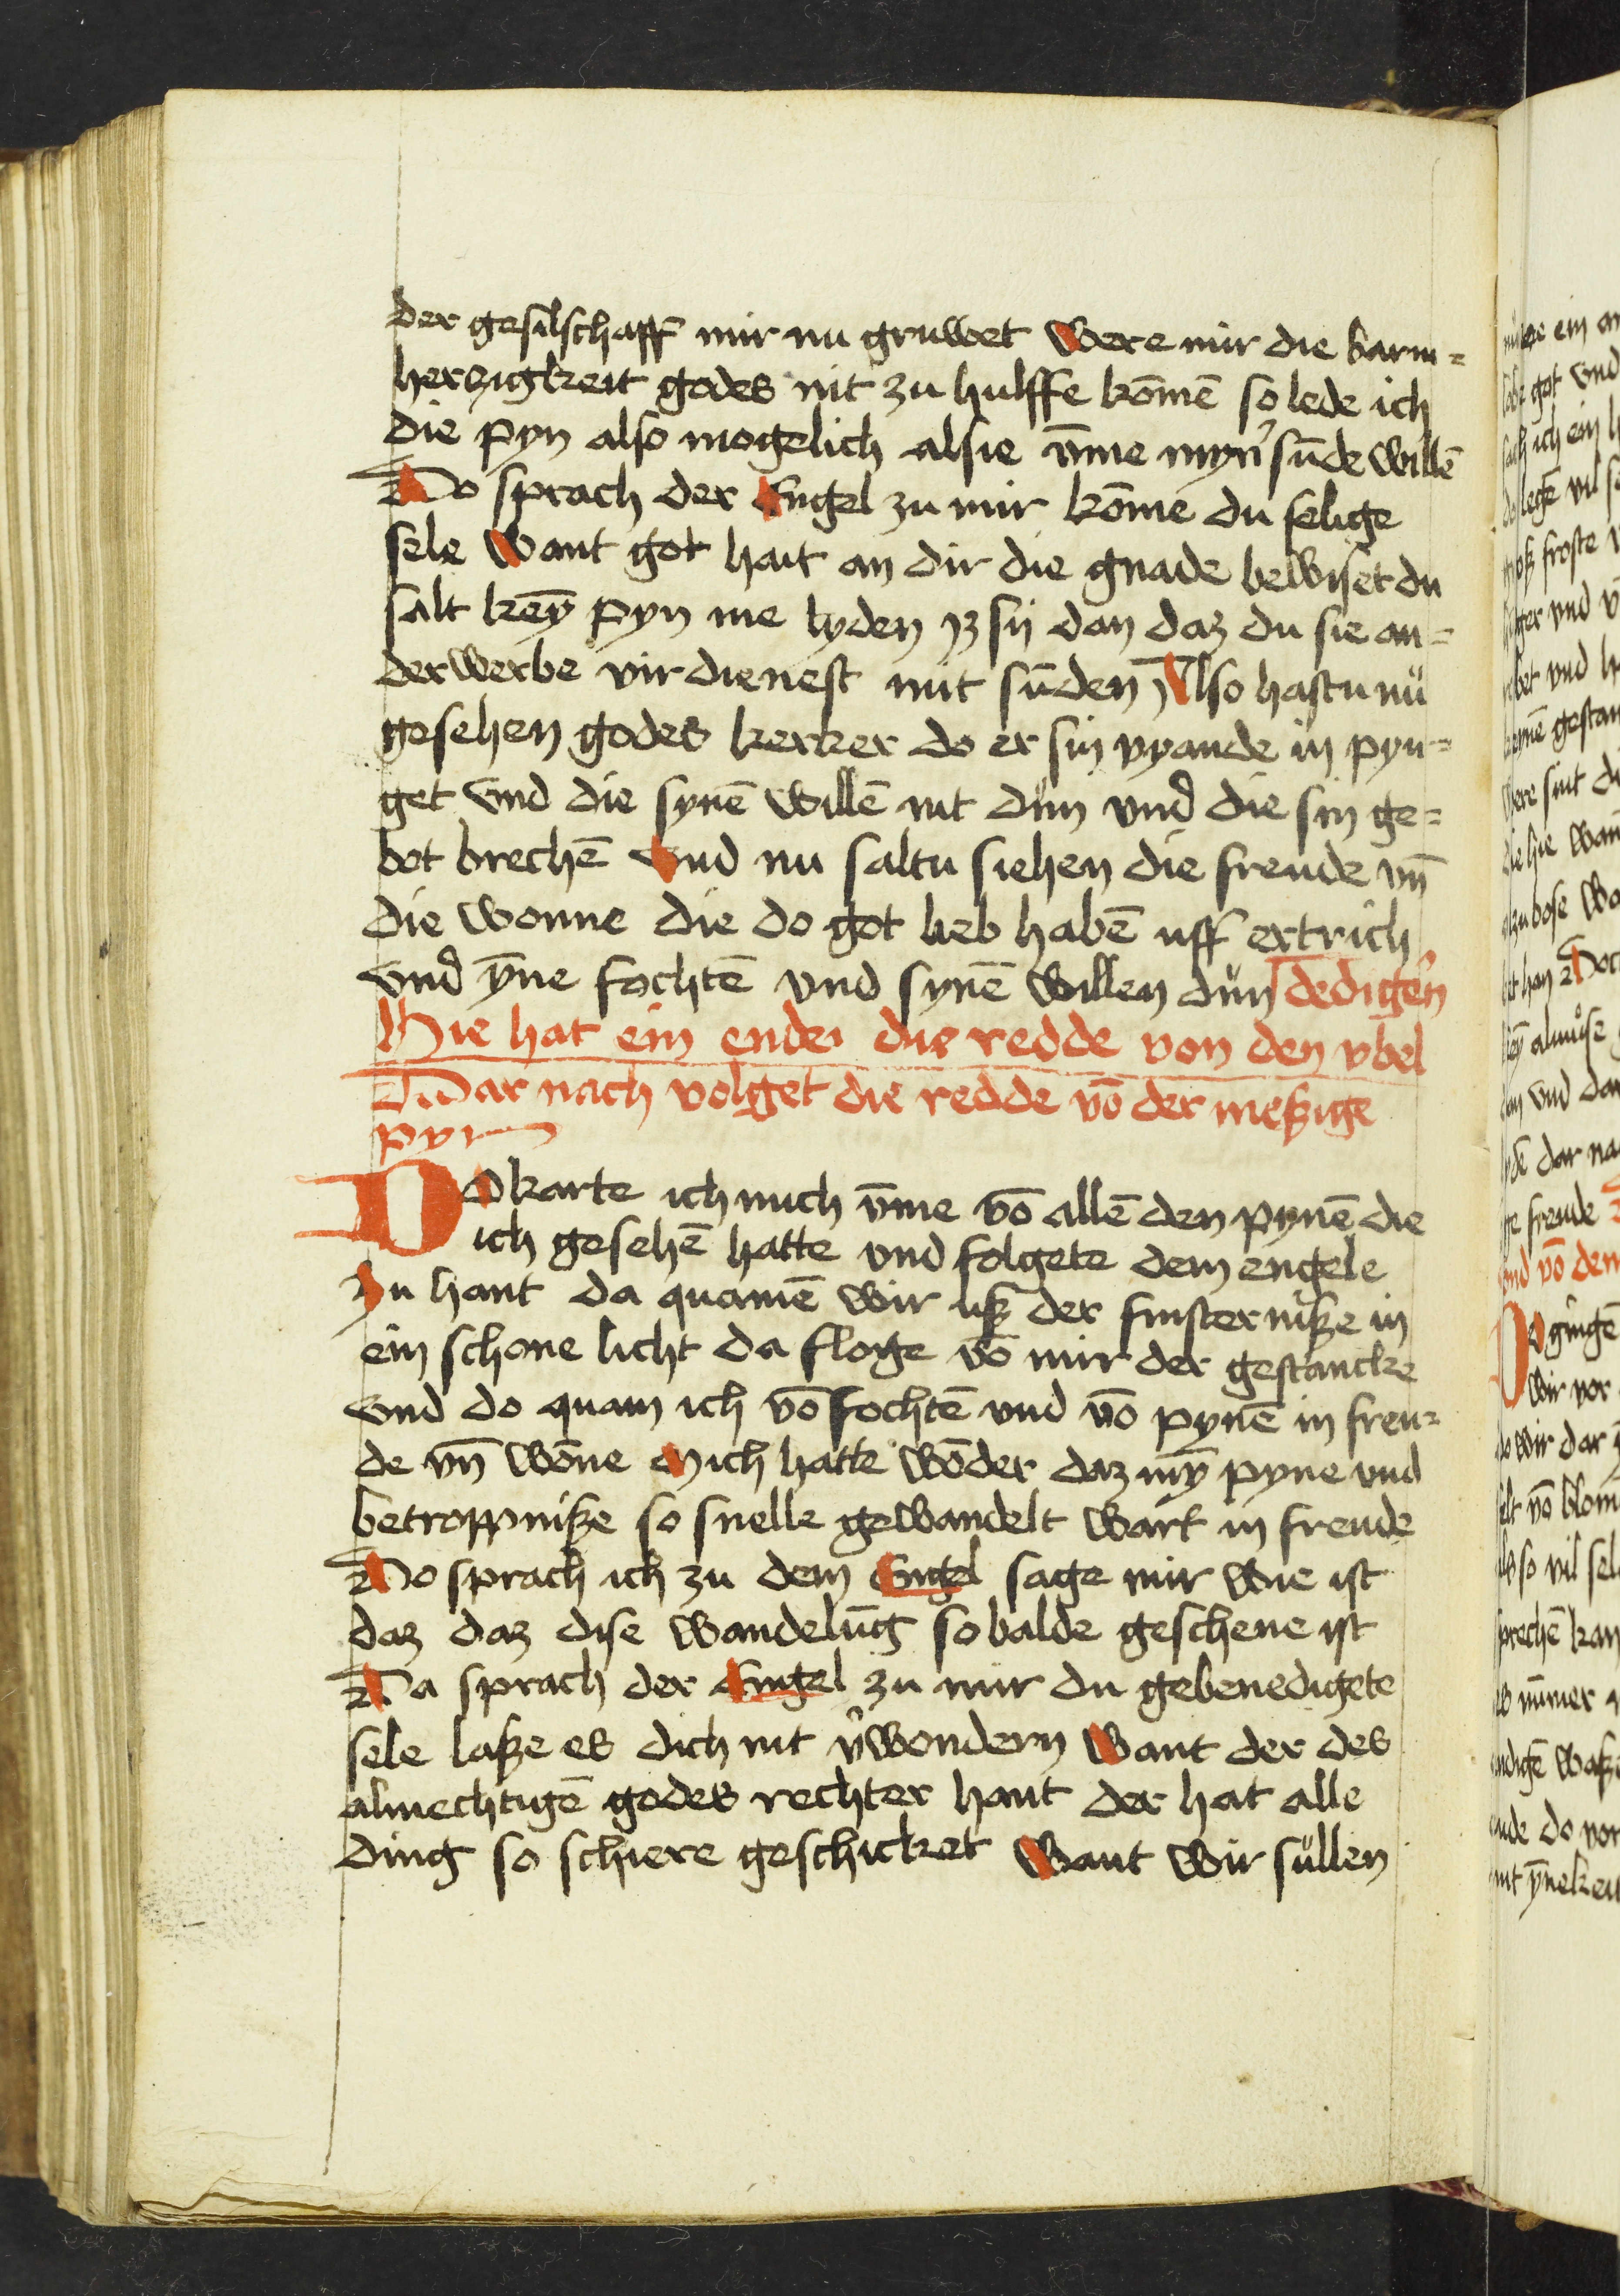 der gesilschaff mir nu gruwet Were mir die barm=
herzigkeit godes nit zu hulffe kōmē so lede ich
die pyn also mogelich alsie v̄me myn' sūde willē
Do sprach der Engel zu mir kōme du selige
sele Want got hait an dir die gnade bewiset du
salt keȳ pyn me lyden yz sij dan daz du sie an=
derwerbe virdienest mit sūden Also hastu nů
gesehen godes kerker do er sin vyande in pyn=
get vnd die synē willē nit důn vnd die sin ge=
bot brechē Vnd nu saltu siehen die freude vn̄
die wonne die do got lieb habē uff ertrich
vnd ȳne fochtē vnd synē willen důn dedigē'n
Hie hat ein ende die redde von den vbel
Dar nach volget die redde vō der meßige
pyn
DO karte ich mich v̄me vō allē den pynē die
ich gesehē hatte vnd folgete dem engele
Zu hant da quamē wir uß der finsterniße in
ein schone licht da floge vō mir der gestancke
vnd do quam ich vō fochtē vnd vō pynē in freu=
de vn̄ wōne Mich hatte wōder daz mȳ pyne vnd
betroppniße so snelle gewandelt wart in freude
Do sprach ich zu dem Engel sage mir wie ist
daz daz dise wandelūg so balde geschene ist
Da sprach der Engel zu mir du gebenedigete
sele laße es dich nit v'wondern Want der des
almechtigē godes rechter hant der hat alle
ding so schiere geschicket Want wir süllen